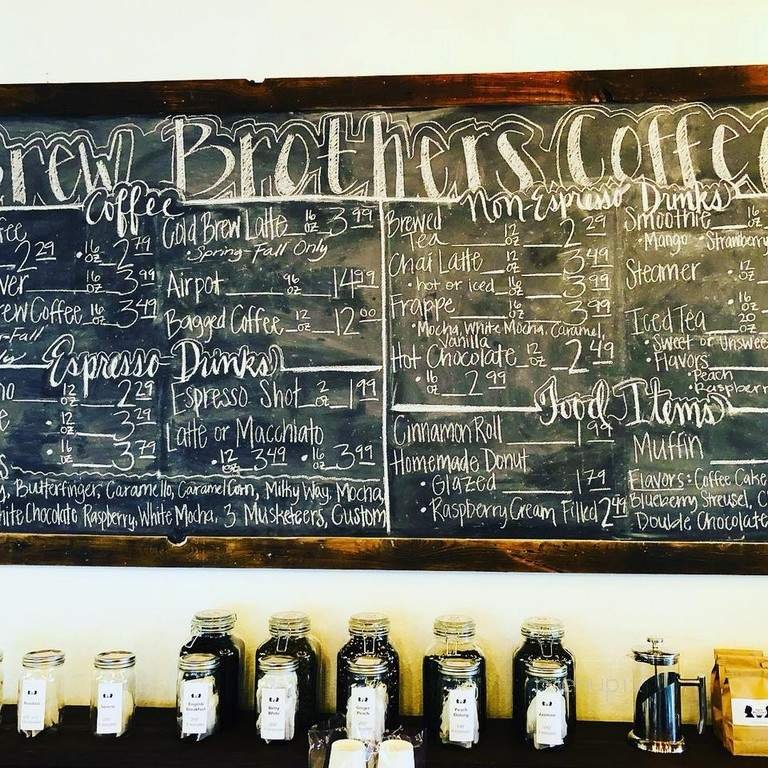 rew Brothers Coffee
Coffee
fee
2.29 • 16 oz 2.79
ver 16 oz 3.99
rew Coffee 16 oz 3.49
-Fall
Cold Brew Latte 16 oz 3.99
• Spring-Fall Only
Airpot 96 oz 14.99
Bagged Coffee 12 oz 12.00
Espresso Drinks
12 oz 2.29
• 12 oz 3.29
• 16 oz 3.79
Espresso Shot 2 oz 1.99
Latte or Macchiato
• 12 oz 3.49 • 16 oz 3.99
Butterfinger, Caramello, Caramel Corn, Milky Way, Mocha,
hite Chocolate Raspberry, White Mocha, 3 Musketeers, Custom
Non-Espresso Drinks
Brewed Tea 12 oz 2.29
Chai Latte 12 oz 3.49
• hot or iced 16 oz 3.99
Frappe 16 oz 3.99
• Mocha, White Mocha, Caramel,
Vanilla
Hot Chocolate 12 oz 2.49
• 16 oz 2.99
Smoothie 16 oz
• Mango • Strawberry
Steamer • 12 oz
• 16 oz
Iced Tea 20 oz
• Sweet or Unswee
• Flavors
• Peach
• Raspberr
Food Items
Cinnamon Roll 1.99
Homemade Donut
• Glazed 1.79
• Raspberry Cream Filled 2.49
Muffin
Flavors: Coffee Cake
Blueberry Streusel, C
Double Chocolate
English Breakfast
Ginger Peach